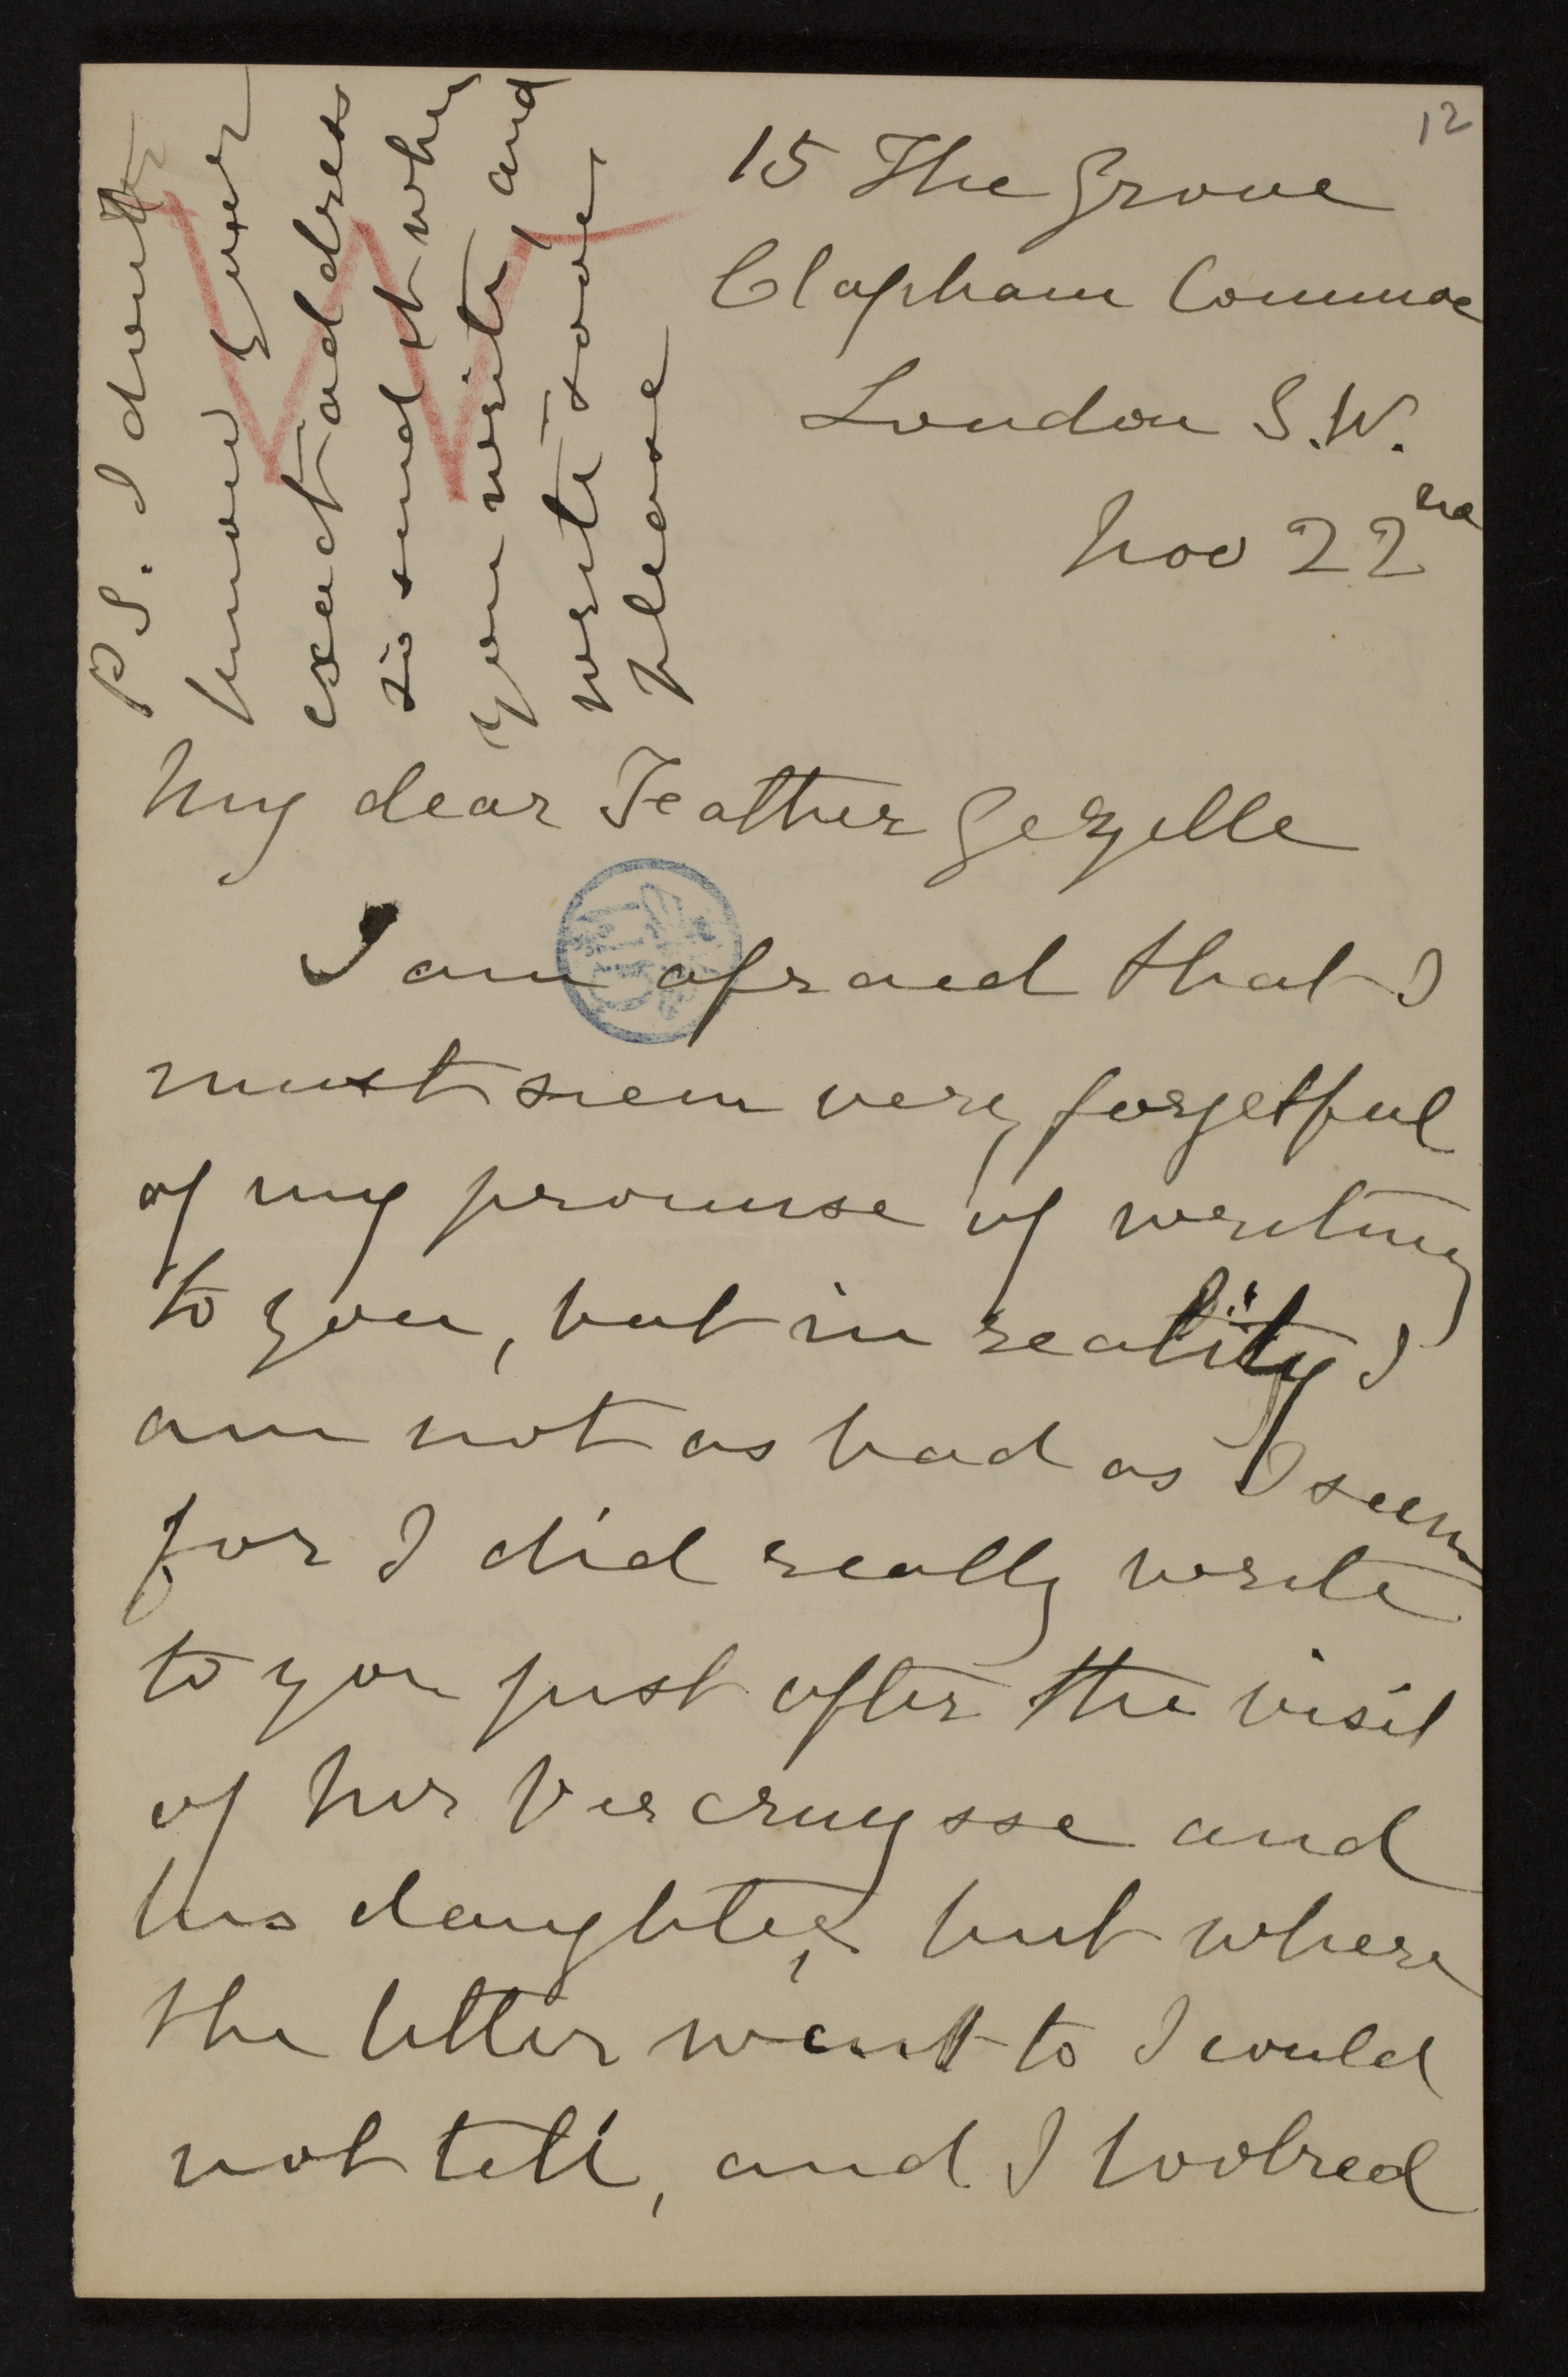 12
15 The Grove
Clapham Common
London S.W.
Nov 22nd
My dear Father Gezelle
I am afraid that I
must seem very forgetful
of my promise of writing
to you, but in reality I
am not as bad as I seem
for I did really write
to you just after the visit
of Mr Vercruysse and
his daughter, but where
the letter went to I could
not tell, and I looked
P.S. I don't
know your
exact address
so send it when
you write, and
write soon
please